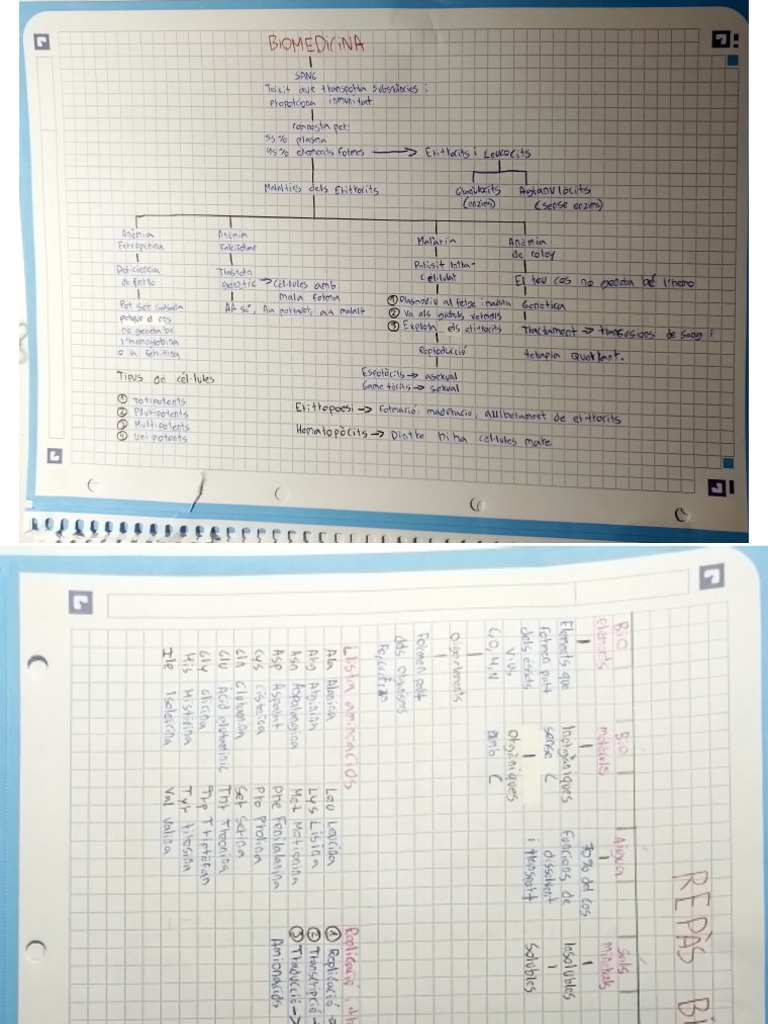 BIOMEDICINA
SANG
Teixit que transporta substàncies i
proporciona immunitat
Composta per:
55% plasma
45% elements formes → Eritrocits i Leucocits
Malalties dels Eritrocits
Granulocits
(enzims)
Agranulòcits
(sense enzims)
Anèmia
Ferropenica
Deficiencia
de ferro
Pot ser causada
perque el cos
no genera bé
l'hemoglobina
o la ferritina
Anèmia
Falciforme
Trastorn
genètic → Cèl·lules amb
mala forma
Malaria
Paràsit intra-
cèl·lular
① Plasmodiu al fetge i madura
② Va als glòbuls vermells
③ Explota els eritrocits
Reproducció
Esporòcits → asexual
Gametòcits → sexual
Anèmia
de cooley
El teu cos no genera bé l'hemo
Genètica
Tractament → transfusions de sang i
teràpia quelant.
Tipus de cèl·lules
① Totipotents
② Pluripotents
③ Multipotents
④ Unipotents
Eritropoesi → Formació, maduració, alliberament de eritrocits
Hematopòcits → Dintre hi ha cèl·lules mare
REPÀS BI
Bio
elements
Elements que
formen part
dels éssers
vius
C, O, H, N
Oligoelements
Formen part
dels organismes
Bio
molècules
Inorgàniques
sense C
Orgàniques
amb C
Aigua
70% del cos
Funcions de
dissolvent
i transport
Sals
minerals
Insolubles
Solubles
Llista aminoacids
Ala Alanina
Arg Arginina
Asn Asparagina
Asp Aspartat
Cys Cisteina
Gln Glutamina
Glu Àcid glutamínic
Gly Glicina
His Histidina
Ile Isoleucina
Leu Leucina
Lys Lisina
Met Metionina
Phe Fenilalanina
Pro Prolina
Ser Serina
Thr Treonina
Trp Triptòfan
Tyr Tirosina
Val Valina
Replicació
① Replicació →
② Transcripció →
③ Traducció →
Aminoacids